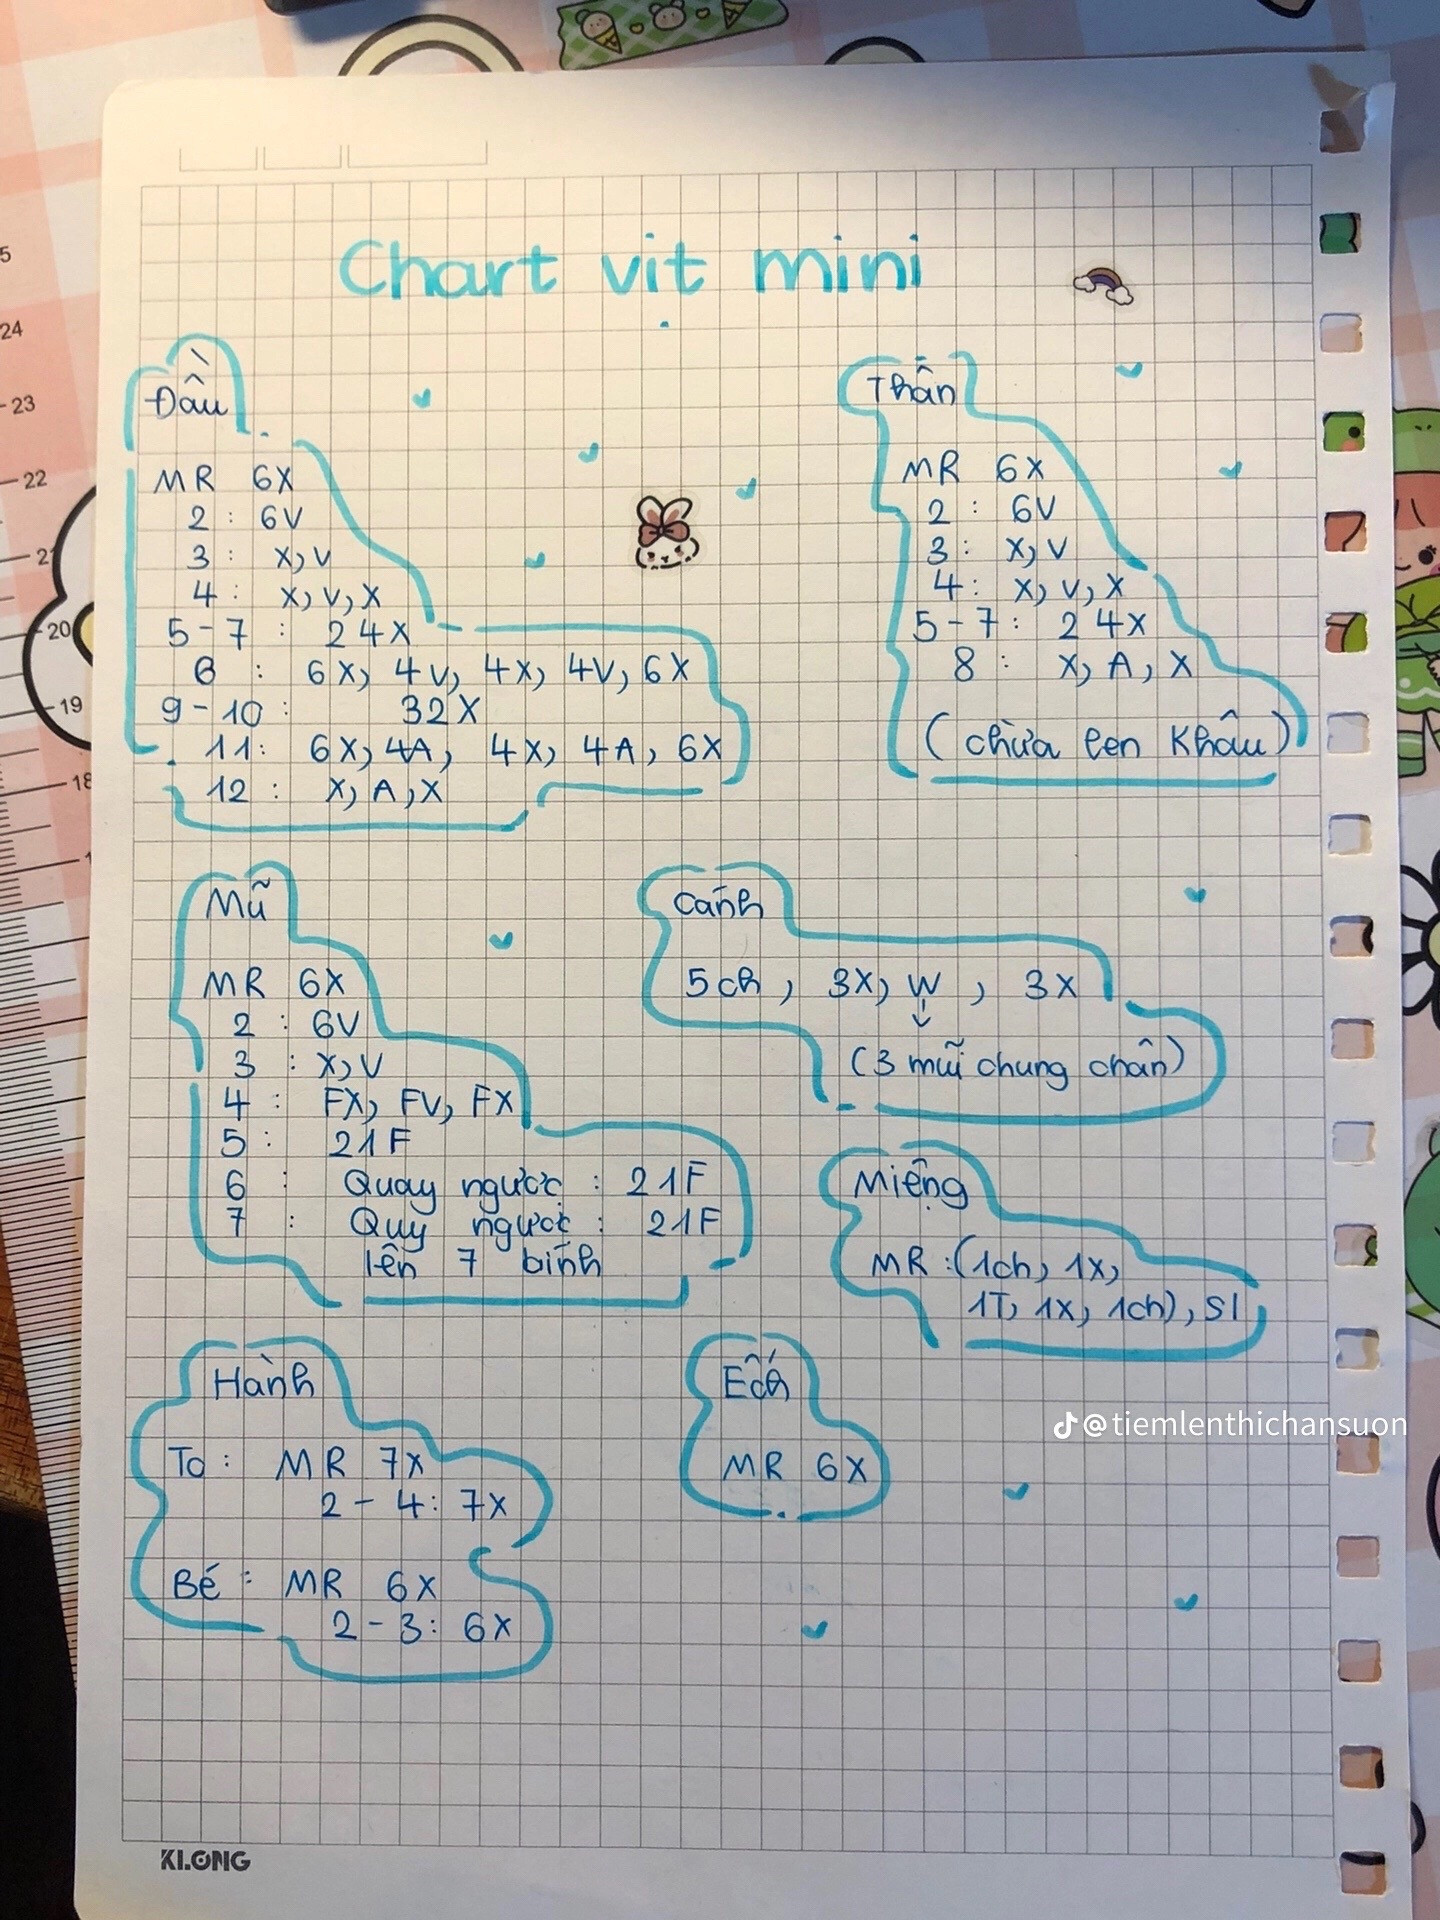 Chart vịt mini
Đầu
MR 6X
2 : 6V
3 : X, V
4 : X, V, X
5 - 7 : 24X
8 : 6X, 4V, 4X, 4V, 6X
9 - 10 : 32X
11 : 6X, 4A, 4X, 4A, 6X
12 : X, A, X
Thân
MR 6X
2 : 6V
3 : X, V
4 : X, V, X
5 - 7 : 24X
8 : X, A, X
(chừa len khâu)
Mũ
MR 6X
2 : 6V
3 : X, V
4 : FX, FV, FX
5 : 21F
6 : Quay ngược : 21F
7 : Quy ngược : 21F
lên 7 bính
Cánh
5ch , 3X, W , 3X
↓
(3 mũi chung chân)
Miệng
MR : (1ch, 1X,
1T, 1X, 1ch), Sl
Hành
To : MR 7X
2 - 4 : 7X
Bé : MR 6X
2 - 3 : 6X
Ếch
MR 6X
@tiemlenthichansuon
KLONG
5
24
23
22
21
20
19
18
1